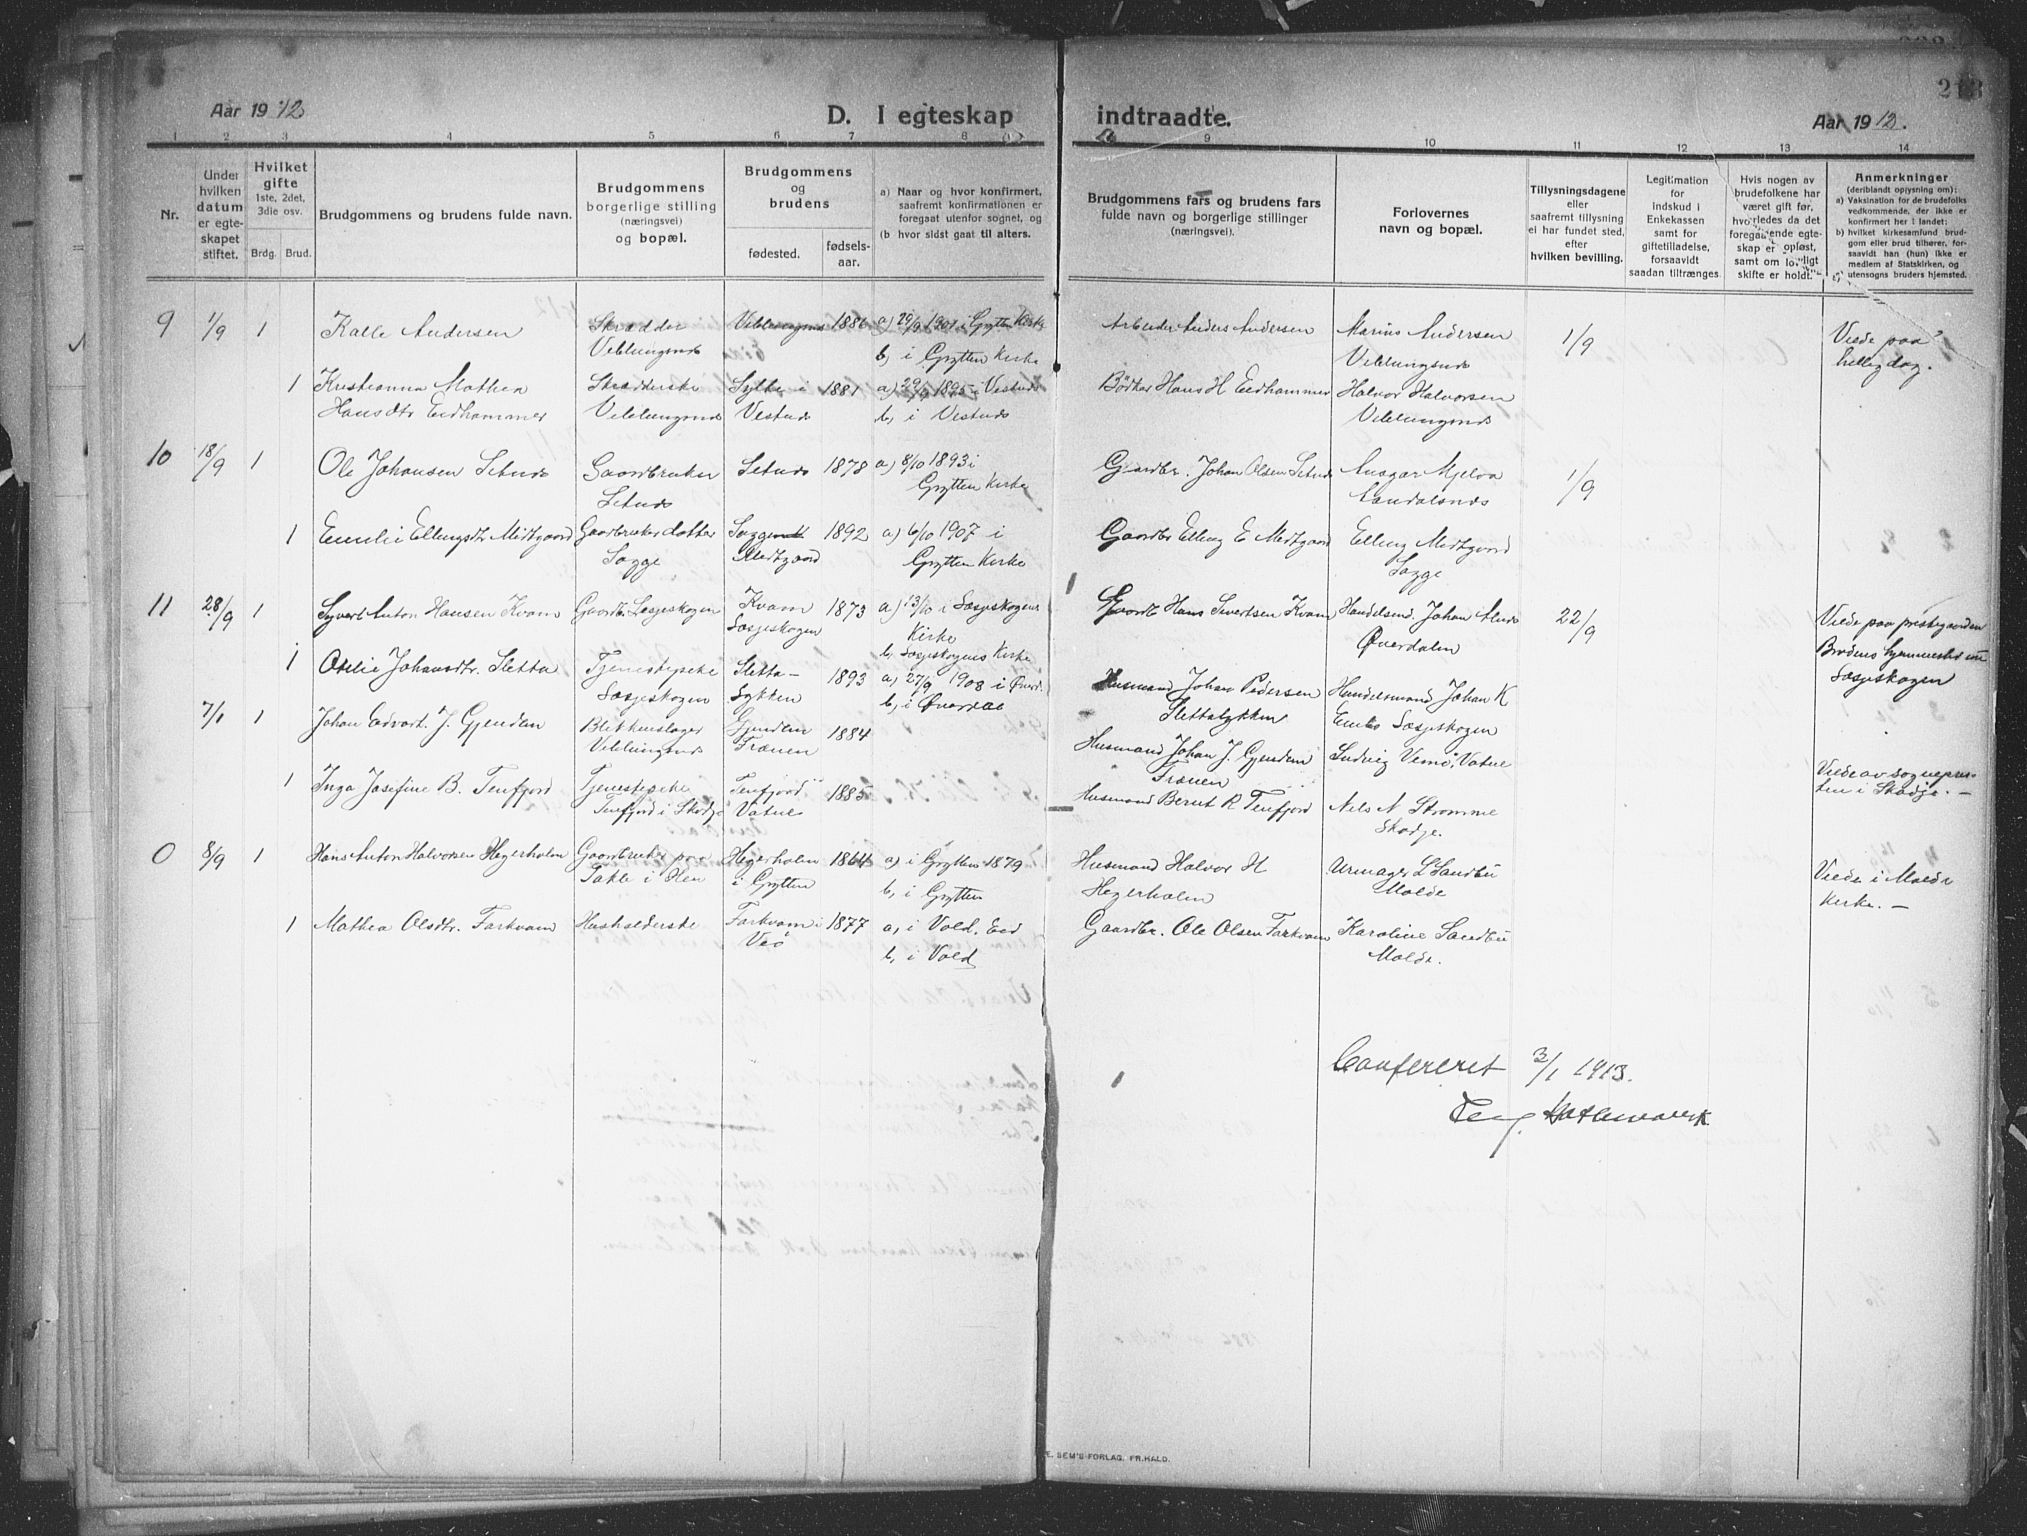 213
Aar 1912
D. I egteskap indtraadte.
Aar 1912.
1 2 3 4 5 6 7 8 9 10 11 12 13 14
Nr.
Under hvilken datum er egteskapet stiftet.
Hvilket gifte
1ste, 2det, 3die osv.
Brdg. Brud.
Brudgommens og brudens fulde navn.
Brudgommens borgerlige stilling (næringsvei) og bopæl.
Brudgommens og brudens
fødested.
fødsels-aar.
a) Naar og hvor konfirmert, saafremt konfirmationen er foregaat utenfor sognet, og
(b hvor sidst gaat til alters.
Brudgommens fars og brudens fars
fulde navn og borgerlige stillinger
(næringsvei).
Forlovernes
navn og bopæl.
Tillysningsdagene
eller
saafremt tillysning
ei har fundet sted,
efter
hvilken bevilling.
Legitimation
for
indskud i
Enkekassen
samt for
giftetilladelse,
forsaavidt
saadan tiltrænges.
Hvis nogen av
brudefolkene har
været gift før,
hvorledes da det
foregaaende egte-
skap er opløst,
samt om lovligt
skifte er holdt.
Anmerkninger
(deriblandt opjysning om):
a) Vaksination for de brudefolks
vedkommende, der ikke er
konfirmert her i landet;
b) hvilket kirkesamfund brud-
gom eller brud tilhører, for-
saavidt han (hun) ikke er
medlem af Statskirken, og
utensogns bruders hjemsted.
9 1/9 1 Kalle Andersen Skrædder Veblungsnes 1886 a) 29/9 1901 i Grytten Kirke Arbeider Anders Andersen Marius Andersen 1/9 Viede paa
Veblungsnes b, i Grytten Kirke Veblungsnes helligdag.
1 Kristianna Mathea Sylte i 1881 a) 29/9 1895 i Vestnes Bødker Hans H Eidhammer Halvor Halvorsen
Hansdtr Eidhammer Veblungsnes Vestnes b, i Vestnes Veblungsnes
10 18/9 1 Ole Johansen Setnes Gaardbruker Setnes 1878 a) 8/10 1893 i Gaardbr. Johan Olsen Setnes Ansgar Mjelva 1/9
Setnes Grytten Kirke Aandalsnes
1 Emilie Ellingsdtr Midtgaard Gaardbruker datter Sogge 1892 a) 6/10 1907 i Gaardbr Elling E Midtgaard Elling Midtgaard
Sogge Midtgaard Grytten Kirke Sogge
11 28/9 1 Syvert Anton Hansen Kvam Gaardbr. Lesjeskogen Kvam 1873 a) 13/10 i Lesjeskogens Gaardbr Hans Sivertsen Kvam Handelsmd. Johan 22/9 Viede paa prestegaarden
Lesjeskogen Kirke Øverdalen
1 Otelie Johansdtr. Sletta Tjenestepike Sletta- 1893 b, Lesjeskogens Kirke
Lesjeskogen Løkken a) 27/9 1908 i Øverd. Husmand Johan Pedersen Handelsmand Johan K Lesjeskogen
b, i Øverdal Slettaløkken Enebo Lesjeskogen
7/1 1 Johan Edvart J. Gjendem Blikkenslager Gjendem 1884 Husmand Johan J. Gjendem Ludvig Vemø, Vatne
Veblungsnes Frænen Frænen
1 Inga Josefine B. Tenfjord Tjenestepike Tenfjord 1885 Husmand Bernt K Tenfjord Nils N Strømme Viede av sognepres-
Tenfjord i Skodje Vatne Skodje. ten i Skodje. —
0 8/9 1 Hans Anton Halvorsen Hegerholm Gaardbruker paa Hegerholm 1864 a) i Grytten 1879 Husmand Halvor H Urmager L Sandbu Viede i Molde
i Grytten b, i Grytten Hegerholm Molde Kirke. —
1 Mathea Olsdtr. Farkvam Husholderske Farkvam i 1877 a, i Vold. Eid Gaardbr. Ole Olsen Farkvam Karoline Sandbu
Veø b, i Vold Molde.
Confereret 3/1 1913.
E. SEM'S FORLAG. FR.HALD.